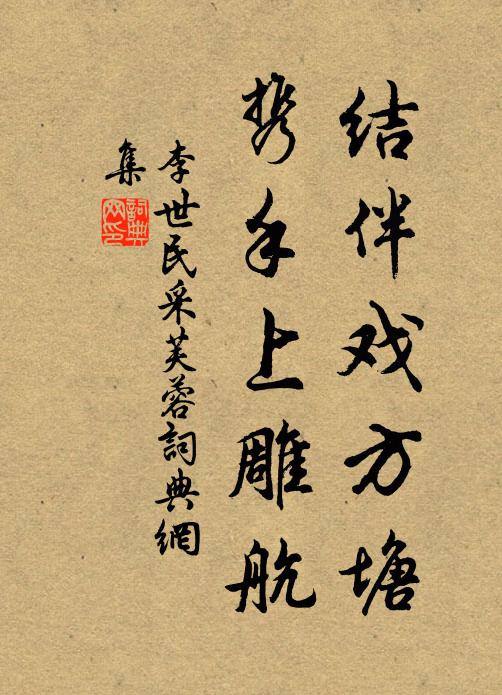 结伴戏方塘
携手上雕航
李世民采芙蓉詞典網
集
詞典网印